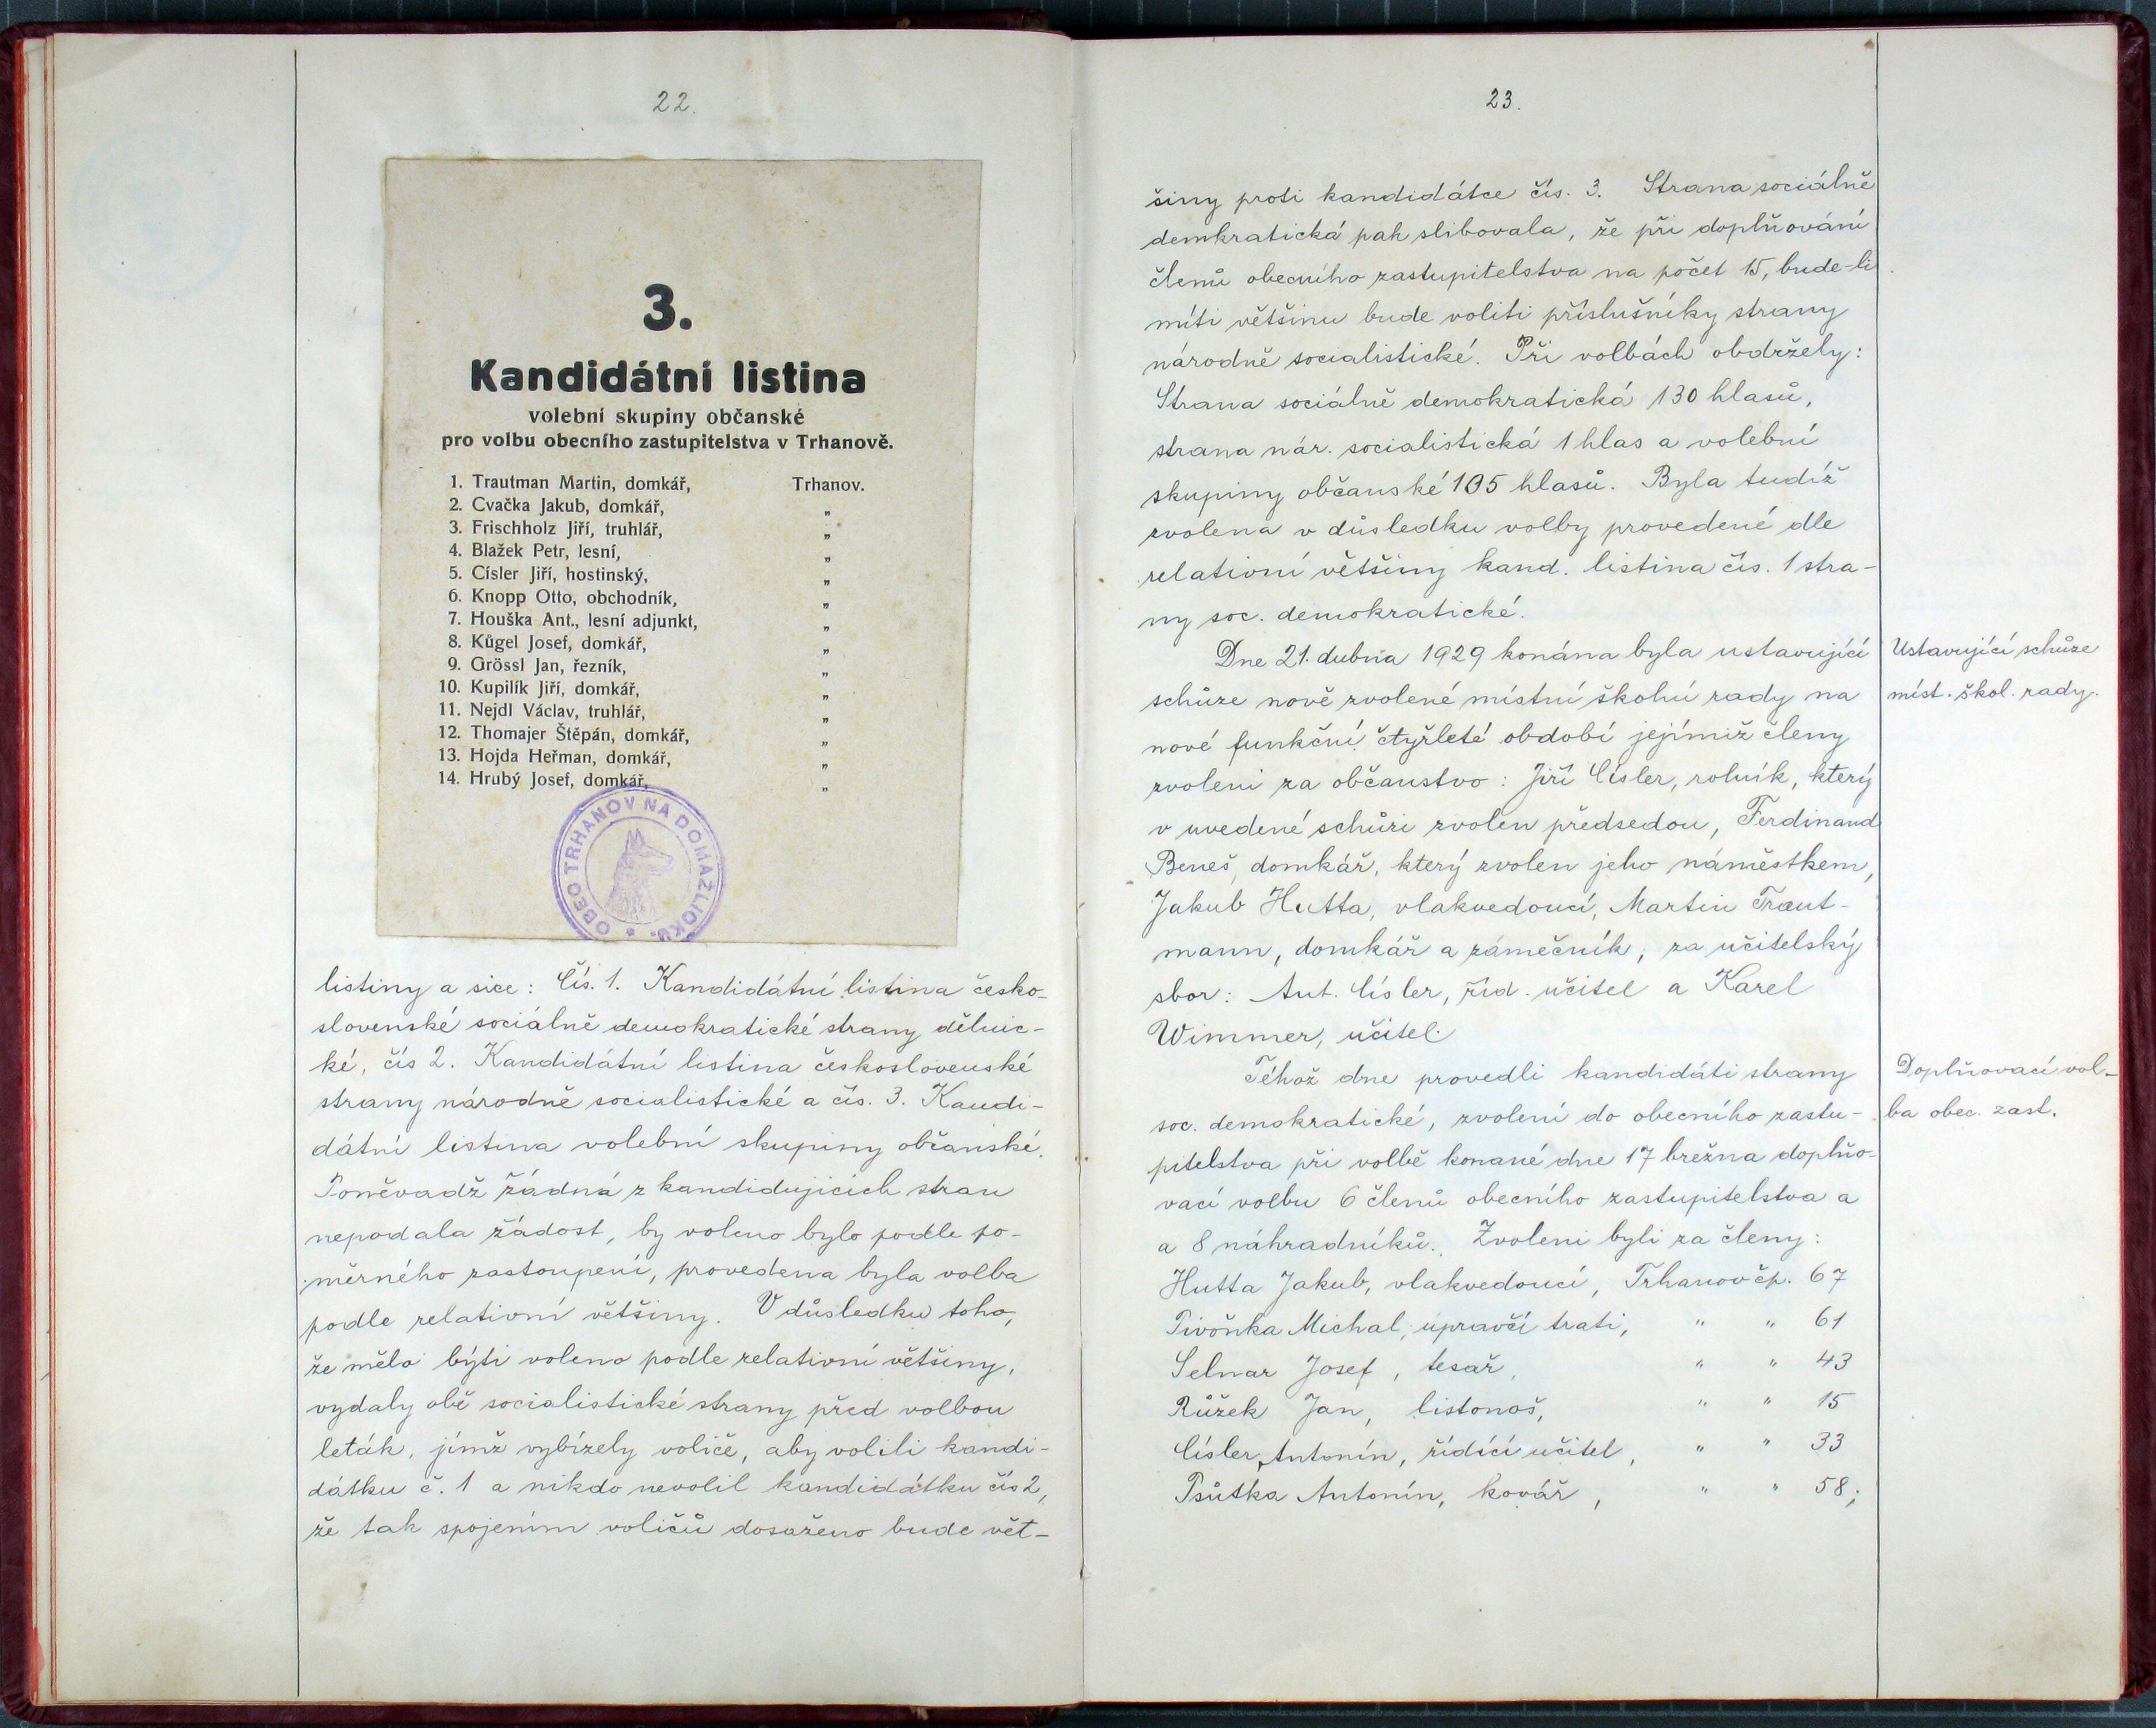 22.
3.
Kandidátní listina
volební skupiny občanské
pro volbu obecního zastupitelstva v Trhanově.
1. Trautman Martin, domkář, Trhanov.
2. Cvačka Jakub, domkář, „
3. Frischholz Jiří, truhlář, „
4. Blažek Petr, lesní, „
5. Císler Jiří, hostinský, „
6. Knopp Otto, obchodník, „
7. Houška Ant., lesní adjunkt, „
8. Kůgel Josef, domkář, „
9. Grössl Jan, řezník, „
10. Kupilík Jiří, domkář, „
11. Nejdl Václav, truhlář, „
12. Thomajer Štěpán, domkář, „
13. Hojda Heřman, domkář, „
14. Hrubý Josef, domkář, „
OBEC TRHANOV NA DOMAŽLICKU.
listiny a sice: Čís. 1. Kandidátní listina česko-
slovenské sociálně demokratické strany dělnic-
ké, čís 2. Kandidátní listina československé
strany národně socialistické a čís. 3. Kandi-
dátní listina volební skupiny občanské.
Poněvadž žádná z kandidujicích stran
nepodala žádost, by voleno bylo podle po-
měrného zastoupení, provedena byla volba
podle relativní většiny. V důsledku toho,
že mělo býti voleno podle relativní většiny,
vydaly obě socialistické strany před volbou
leták, jímž vybízely voliče, aby volili kandi-
dátku č. 1 a nikdo nevolil kandidátku čís 2,
že tak spojením voličů dosaženo bude vět-
23.
šiny proti kandidátce čís. 3. Strana sociálně
demkratická pak slibovala, že při doplňování
členů obecního zastupitelstva na počet 15, bude-li
míti většinu bude voliti příslušníky strany
národně socialistické. Při volbách obdržely:
Strana sociálně demokratická 130 hlasů,
strana nár. socialistická 1 hlas a volební
skupiny občanské 105 hlasů. Byla tudíž
zvolena v důsledku volby provedené dle
relativní většiny kand. listina čís. 1 stra-
ny soc. demokratické.
Dne 21. dubna 1929 konána byla ustavující
schůze nově zvolené místní školní rady na
nové funkční čtyřleté období jejímiž členy
zvoleni za občanstvo: Jiří Císler, rolník, který
v uvedené schůzi zvolen předsedou, Ferdinand
Beneš, domkář, který zvolen jeho náměstkem,
Jakub Hutta, vlakvedoucí, Martin Traut-
mann, domkář a zámečník, za učitelský
sbor: Ant. Císler, říd. učitel a Karel
Wimmer, učitel.
Téhož dne provedli kandidáti strany
soc. demokratické, zvolení do obecního zastu-
pitelstva při volbě konané dne 17 března doplňo-
vací volbu 6 členů obecního zastupitelstva a
a 8 náhradníků. Zvoleni byli za členy:
Hutta Jakub, vlakvedoucí, Trhanov čp. 67
Pivoňka Michal, upravčí trati, " " 61
Selnar Josef, tesař, " " 43
Růžek Jan, listonoš, " " 15
Císler Antonín, řídící učitel, " " 33
Psůtka Antonín, kovář, " " 58;
Ustavující schůze
míst. škol. rady.
Doplňovací vol-
ba obec. zast.